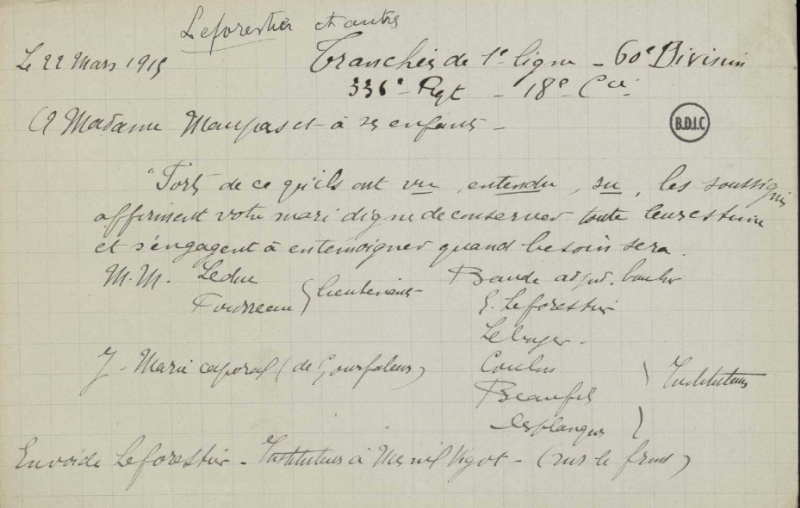 Leforestier et autres
Le 22 Mars 1915
Tranchées de 1e ligne - 60e Division
336e Rgt - 18e Cie
B.D.I.C
A Madame Maupas et à ses enfants -
"Forts de ce qu'ils ont vu, entendu, su, les soussignés
affirment votre mari digne de conserver toute leur estime
et s'engagent à en témoigner quand besoin sera.
M.M. Leduc
lieutenants
J. Marie caporal (de Gourfaleur)
Bande adjud.
E. Leforestier
Coulon
Beaufils
Lesplanques
Instituteurs
Envoi de Leforestier - Instituteur à Mesnil Vigot - (sur le front)